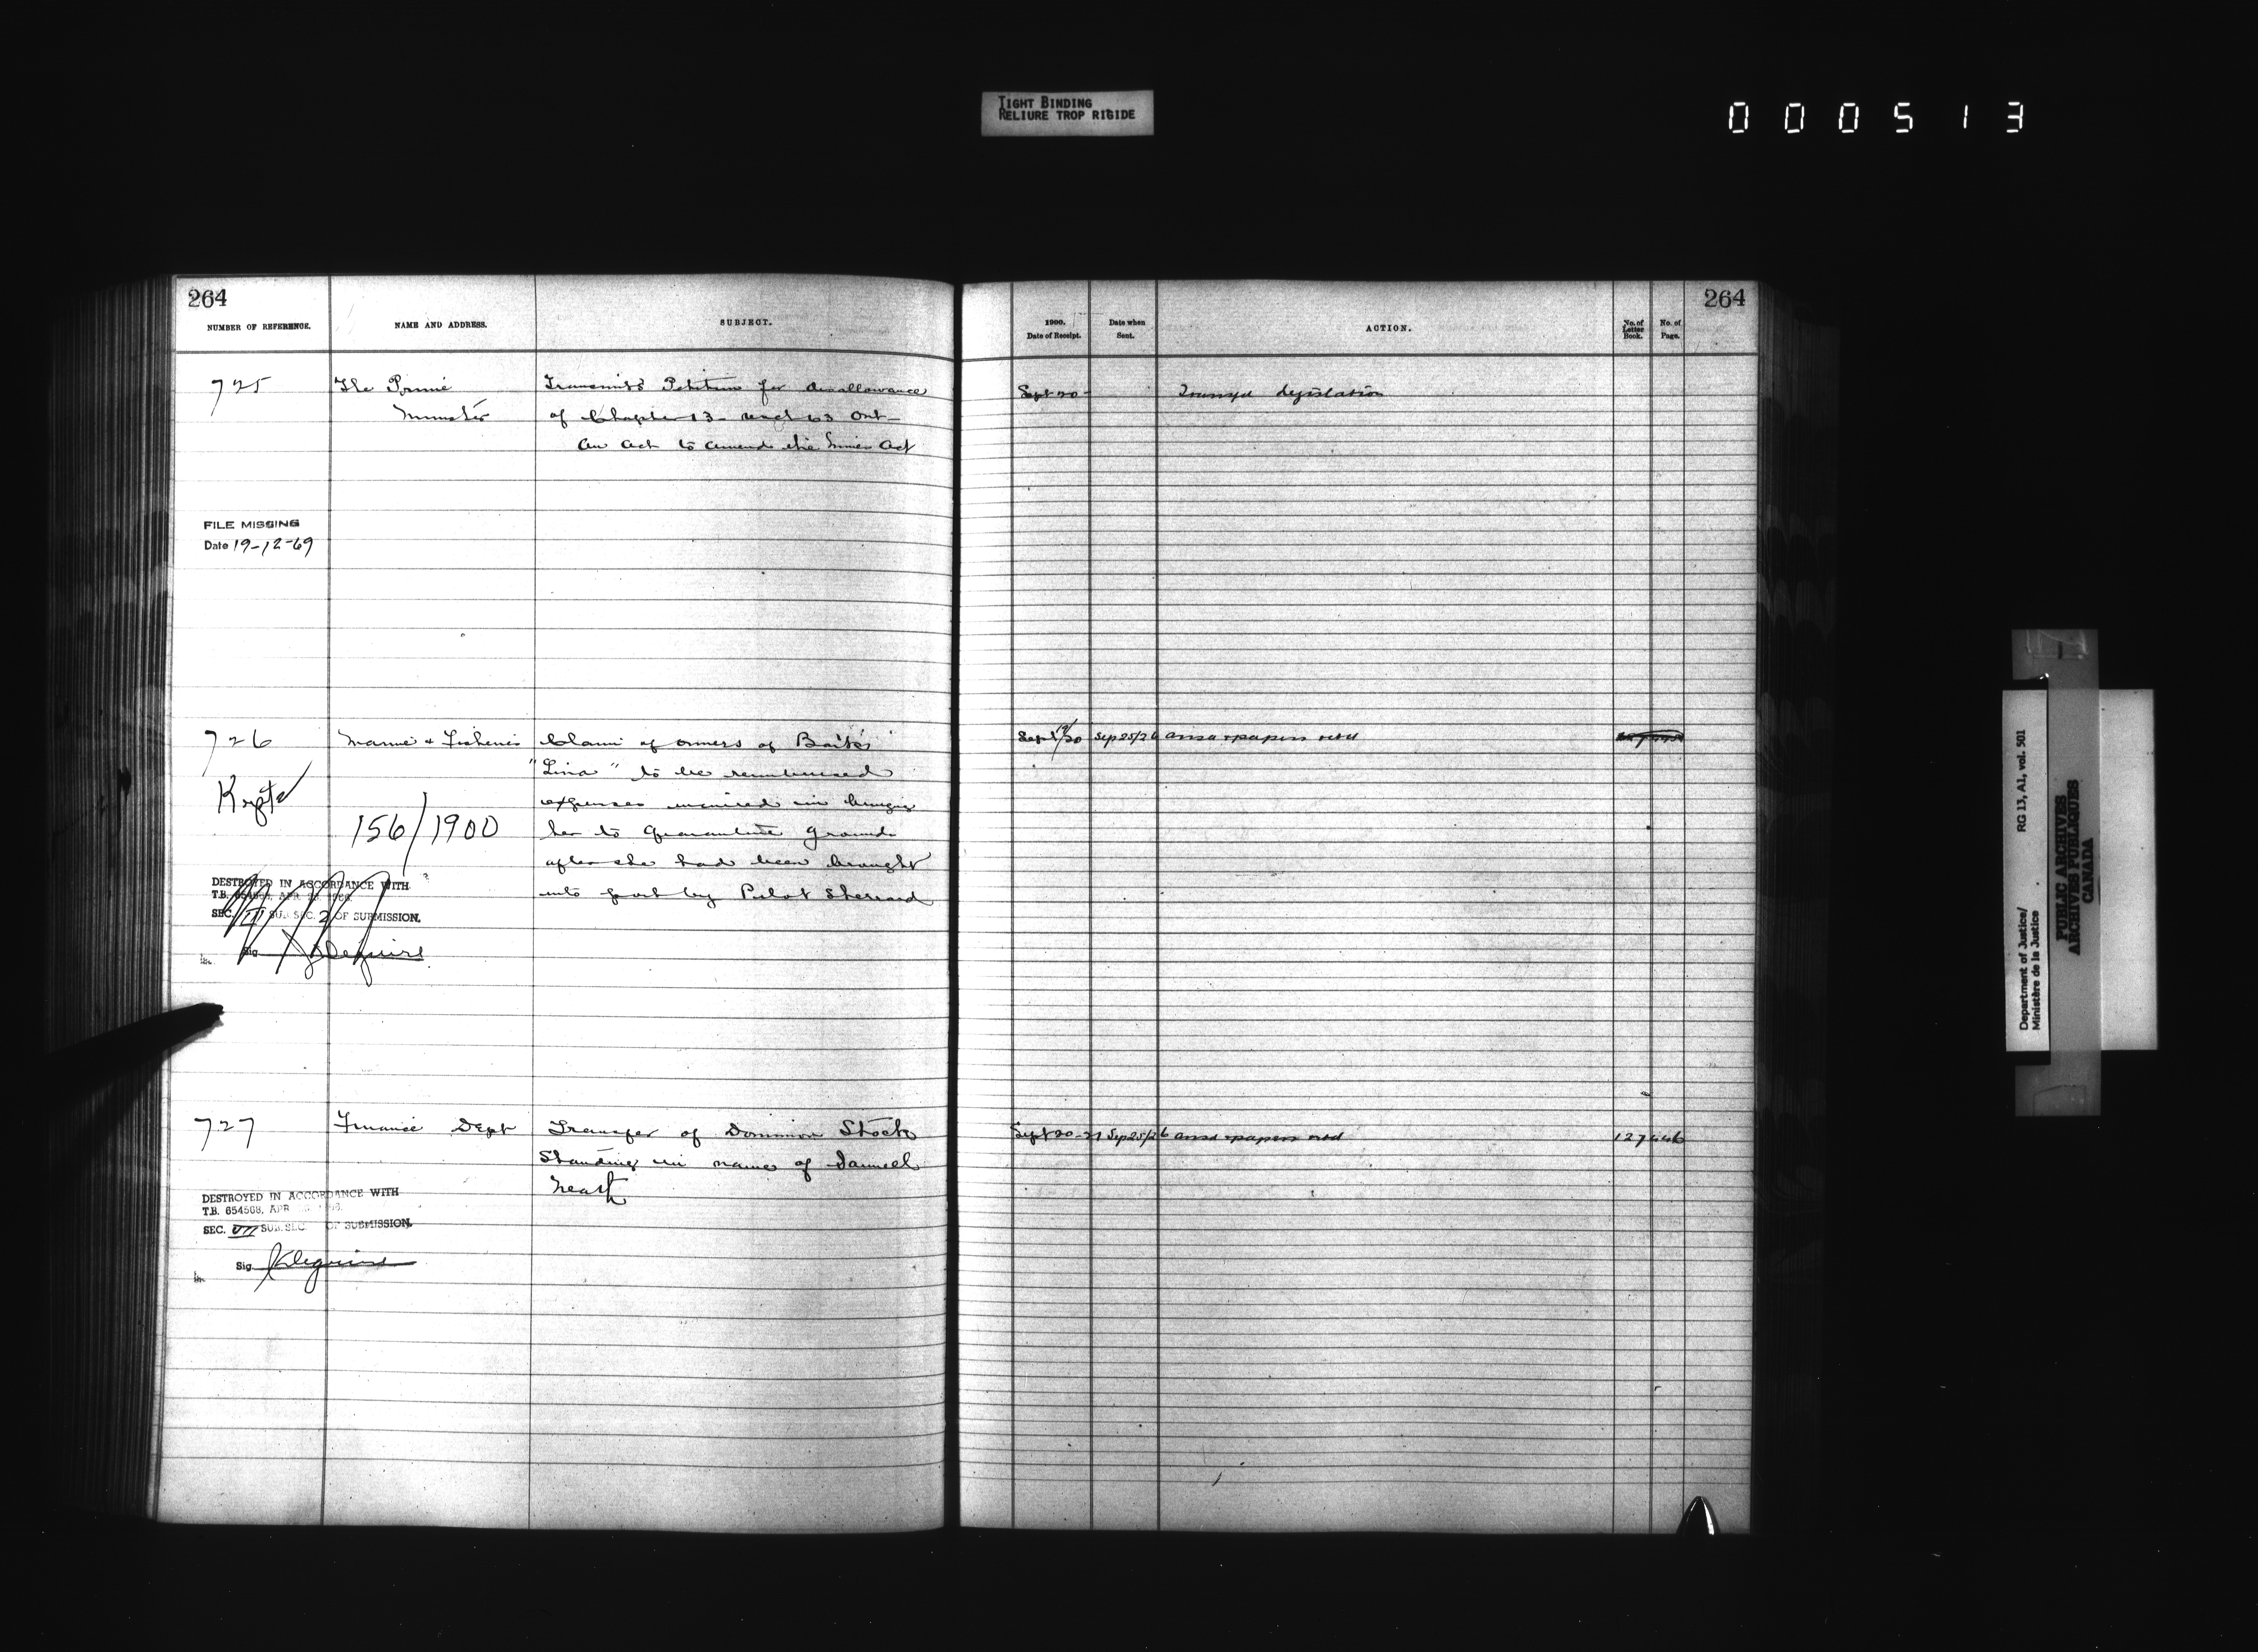 TIGHT BINDING
RELIURE TROP RIGIDE
000513
264
NUMBER OF REFERENCE.
NAME AND ADDRESS.
SUBJECT.
725
The Prime
Minister
Transmits Petition for disallowance
of Chapter 13 63 Ont
An Act to amend the Mines Act
FILE MISSING
Date 19-12-69
726
Marine & Fisheries
Claim of owners of Barke
"Lina" to be reimbursed
expenses incurred in bringing
her to Quarantine grounds
after she had been brought
into port by Pilot Sherrard
Kept
156/1900
DESTROYED IN ACCORDANCE WITH
T.B. 654568, APR.
SEC. III SUB. SEC. 2 OF SUBMISSION.
Sig
727
Finance Dept
Transfer of Dominion Stock
Standing in name of Samuel
DESTROYED IN ACCORDANCE WITH
T.B. 654568, APR
SEC. VII SUB. SEC. OF SUBMISSION.
Sig
264
1900.
Date of Receipt.
Date when
Sent.
ACTION.
No. of
Letter
Book.
No. of
Page.
Sept 20
Transfd Legislation
Sept 19/20 Sep 25/26 ansd & papers retd
Sept 20-21 Sep 25/26 ansd & papers retd
127 446
Department of Justice/
Ministère de la Justice
RG 13, A1, vol. 501
PUBLIC ARCHIVES
ARCHIVES PUBLIQUES
CANADA